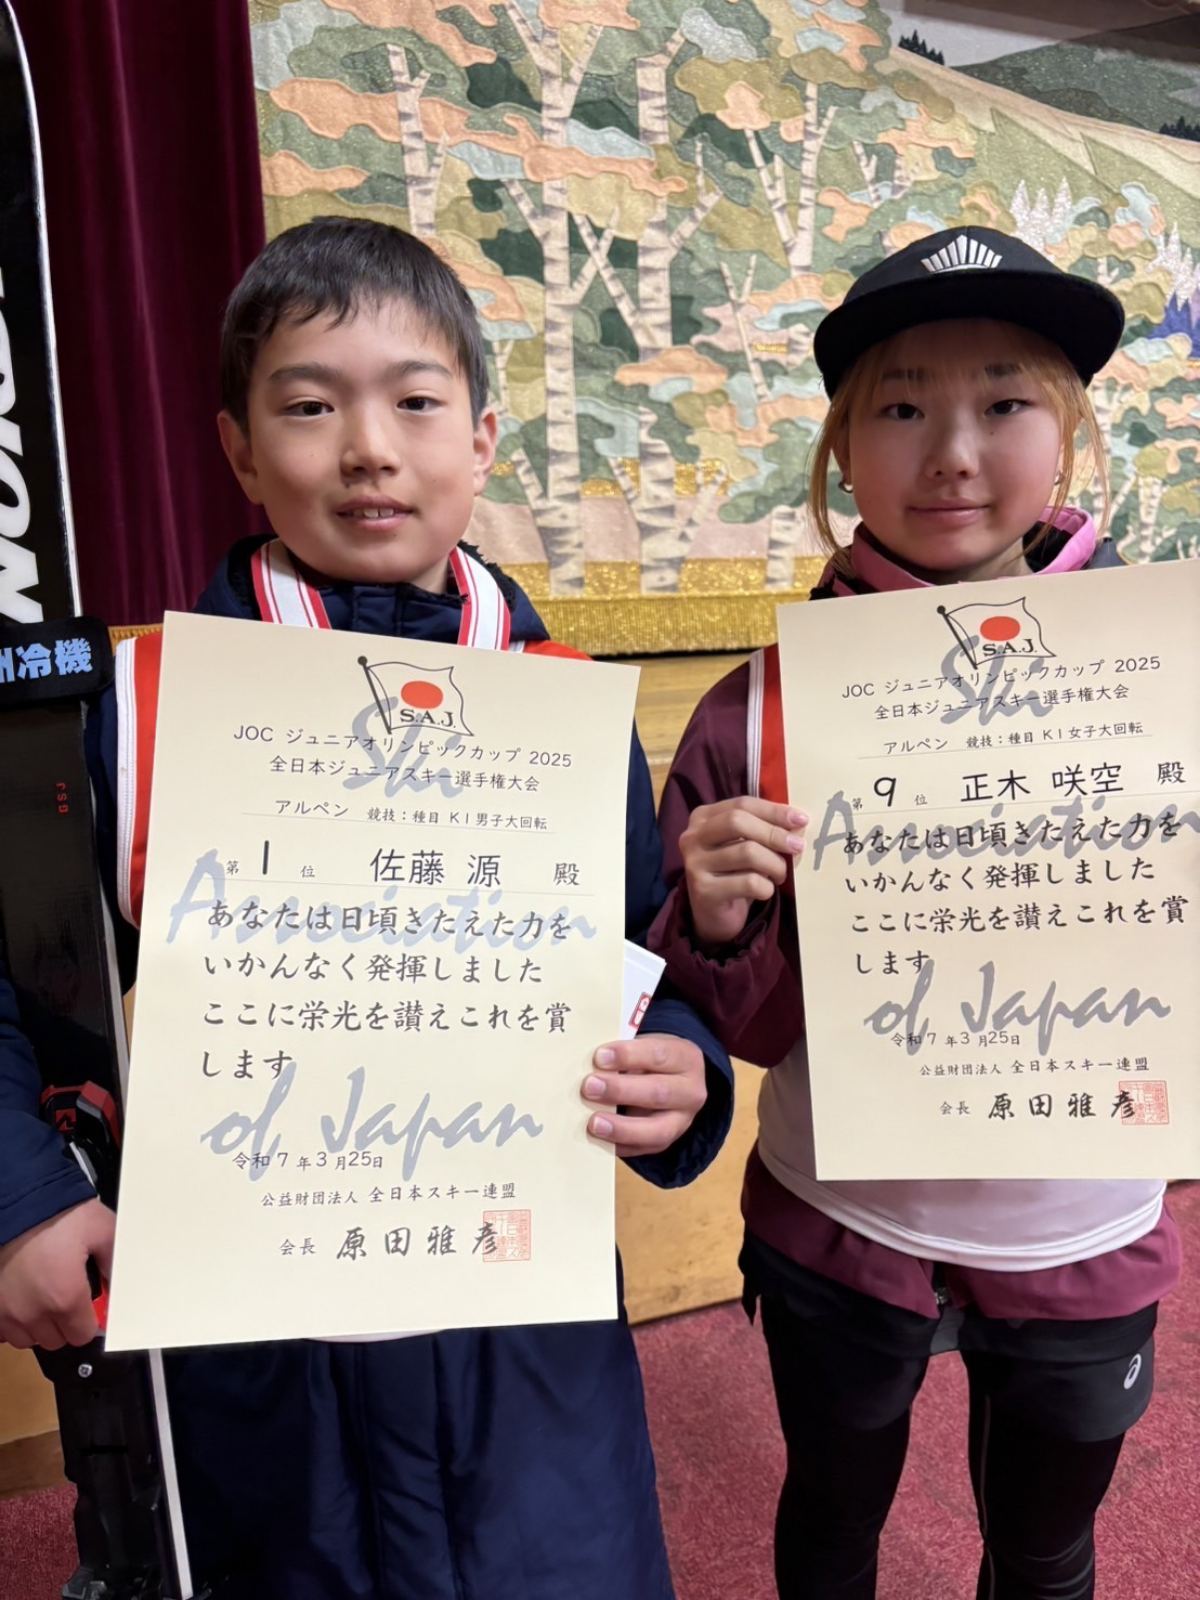 州冷機
S.A.J.
Ski
JOC ジュニアオリンピックカップ 2025
全日本ジュニアスキー選手権大会
アルペン 競技：種目 K1男子大回転
第 1 位 佐藤 源 殿
Association
あなたは日頃きたえた力を
いかんなく発揮しました
ここに栄光を讃えこれを賞
します
of Japan
令和7年3月25日
公益財団法人 全日本スキー連盟
会長 原田雅彦
S.A.J.
Ski
JOC ジュニアオリンピックカップ 2025
全日本ジュニアスキー選手権大会
アルペン 競技：種目 K1女子大回転
第 9 位 正木 咲空 殿
Association
あなたは日頃きたえた力を
いかんなく発揮しました
ここに栄光を讃えこれを賞
します
of Japan
令和7年3月25日
公益財団法人 全日本スキー連盟
会長 原田雅彦